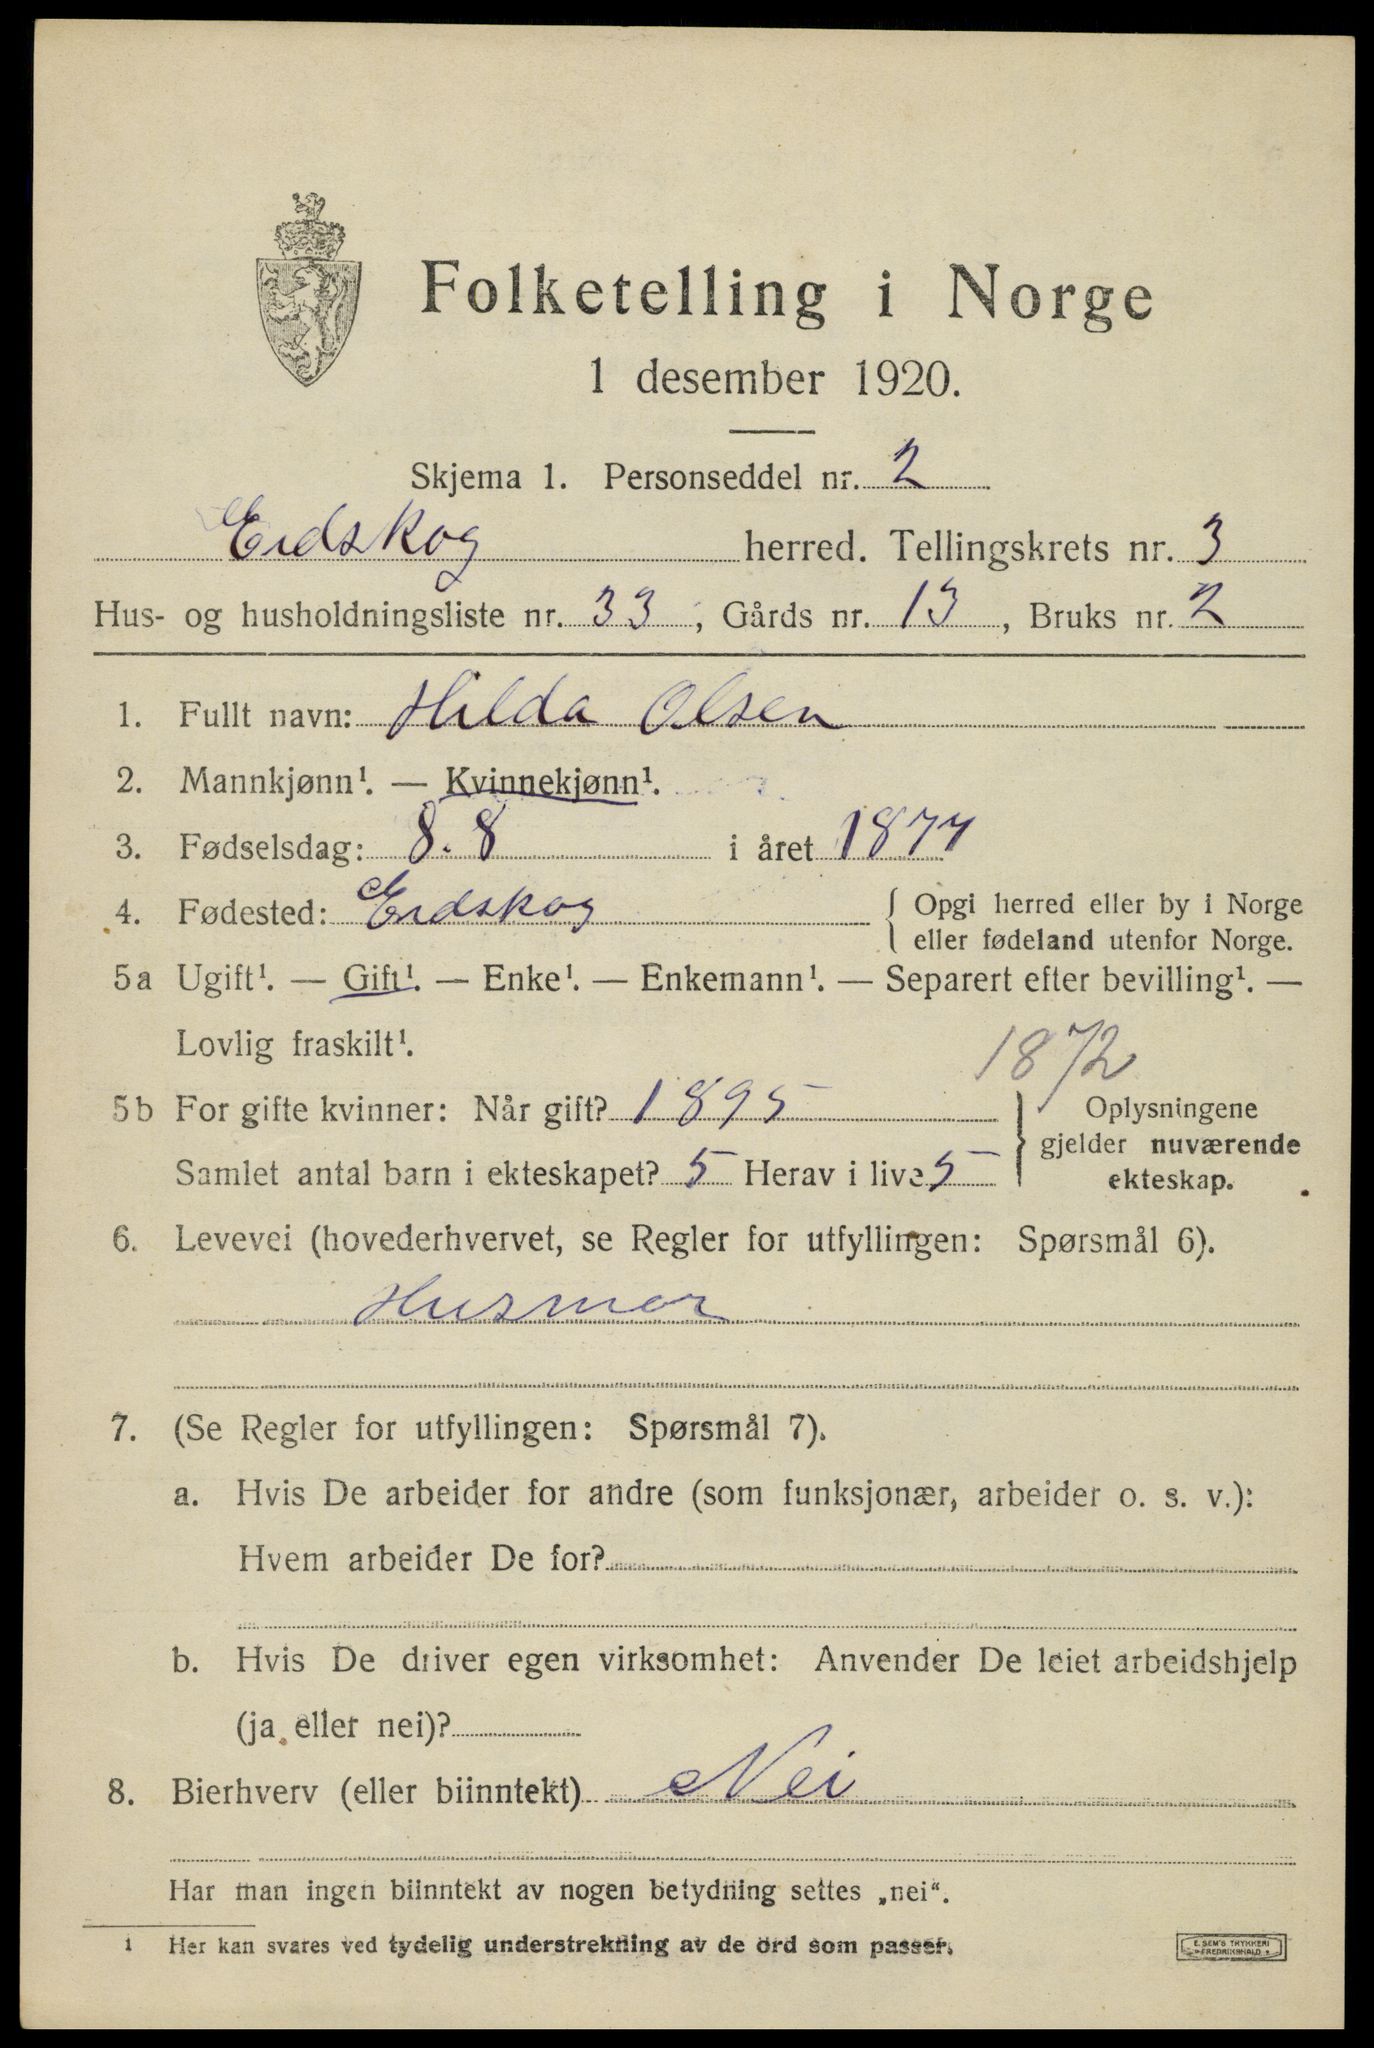 Folketelling i Norge
1 desember 1920.
Skjema 1. Personseddel nr. 2
Eidskog herred. Tellingskrets nr. 3
Hus- og husholdningsliste nr. 33, Gårds nr. 13, Bruks nr. 2
1. Fullt navn: Hilda Olsen
2. Mannkjønn¹. — Kvinnekjønn¹.
3. Fødselsdag: 8.8 i året 1877
4. Fødested: Eidskog { Opgi herred eller by i Norge
eller fødeland utenfor Norge.
5a Ugift¹. — Gift¹. — Enke¹. — Enkemann¹. — Separert efter bevilling¹. —
Lovlig fraskilt¹.
1872
5b For gifte kvinner: Når gift? 1895 } Oplysningene
gjelder nuværende
Samlet antal barn i ekteskapet? 5 Herav i live 5 ekteskap.
6. Levevei (hovederhvervet, se Regler for utfyllingen: Spørsmål 6).
Husmor
7. (Se Regler for utfyllingen: Spørsmål 7).
a. Hvis De arbeider for andre (som funksjonær, arbeider o. s. v.):
Hvem arbeider De for?
b. Hvis De driver egen virksomhet: Anvender De leiet arbeidshjelp
(ja eller nei)?
8. Bierhverv (eller biinntekt) Nei
Har man ingen biinntekt av nogen betydning settes „nei“.
1 Her kan svares ved tydelig understrekning av de ord som passer.
E. SEM'S TRYKKERI
FREDRIKSHALD